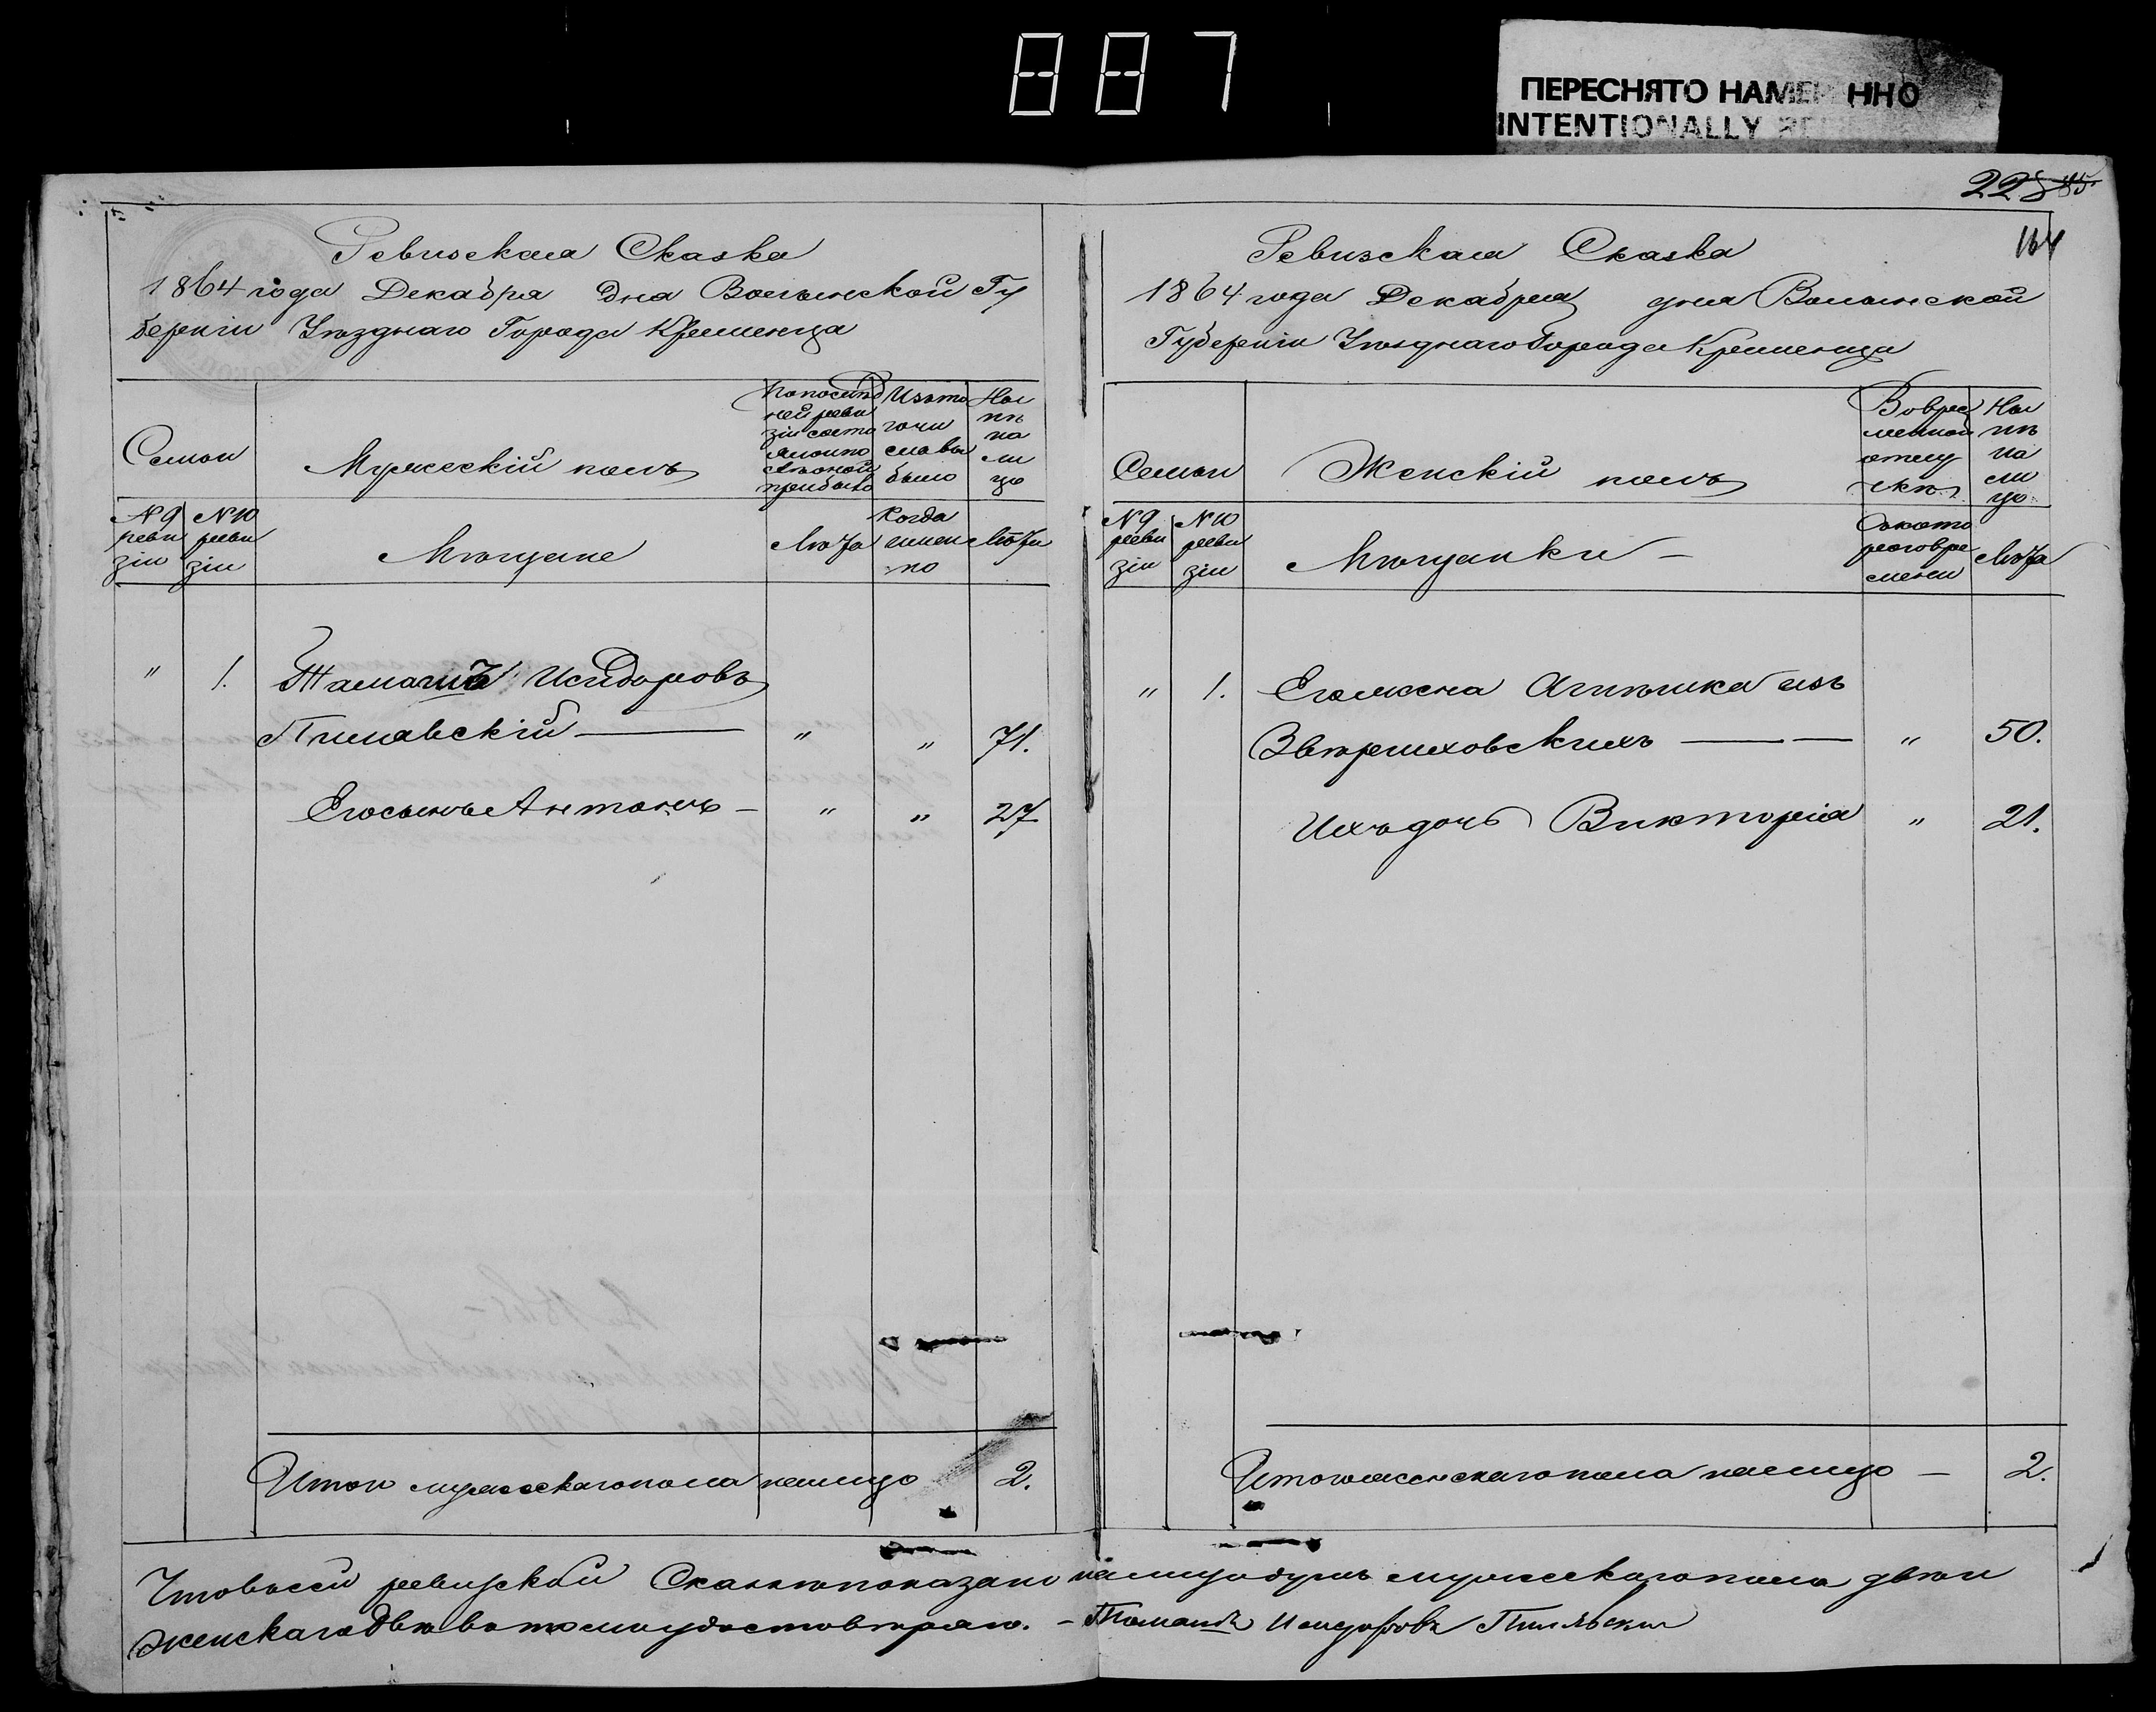 887
ПЕРЕСНЯТО НАМЕ ННО
INTENTIONALLY
228 85
164
Ревизская Сказка
1864 года Декабря дня Волынской Гу
берніи Уѣзднаго Города Кременца
Семьи
Мужескій полъ
Попослѣд
ней реви
зіи состо
яло и по
слѣ оной
прибыло
Изъ то
го чи
сла вы
было
На
ли
цо
№ 9
реви
зіи
№ 10
реви
зіи
Мѣщане
Лѣта
Когда
имен
но
Лѣта
" 1. Исидоровъ
Пилявскій — " " 71.
Его сынъ Антонъ — " " 27.
Итого мужескаго пола налицо 2.
Ревизская Сказка
1864 года Декабря дня Волынской
Губерніи Уѣзднаго Города Кременца
Семьи
Женскій полъ
Во вре
менной
отлу
чкѣ
На
ли
цо
№ 9
реви
зіи
№ 10
реви
зіи
Мѣщанки —
Съ кото
раго вре
мени
Лѣта
" 1. Его жена изъ
— — " 50.
Ихъ дочь Викторія " 21.
Итого женскаго пола налицо — 2.
Что въ сей ревизской Сказкѣ показано налицо душъ мужескаго пола двѣ и
женскаго двѣ въ томъ удостовѣряю. — Исидоровъ